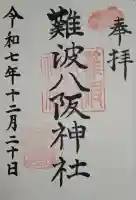 奉拝
難波八阪神社
令和七年十二月二十日